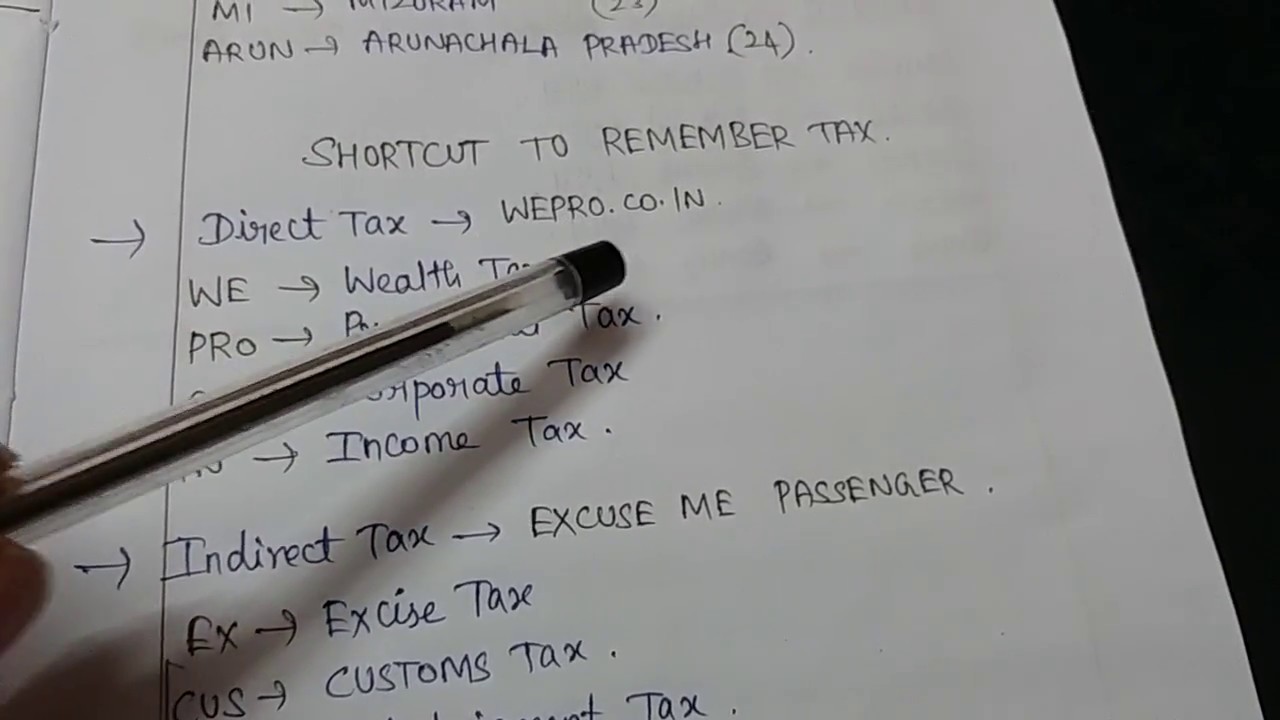 MI → MIZORAM (23)
ARUN → ARUNACHALA PRADESH (24).
SHORTCUT TO REMEMBER TAX.
→ Direct Tax → WEPRO.CO.IN.
WE → Wealth
PRO → Tax.
Tax
→ Income Tax.
→ Indirect Tax → EXCUSE ME PASSENGER.
EX → Excise Tax
CUS → CUSTOMS Tax.
Tax.